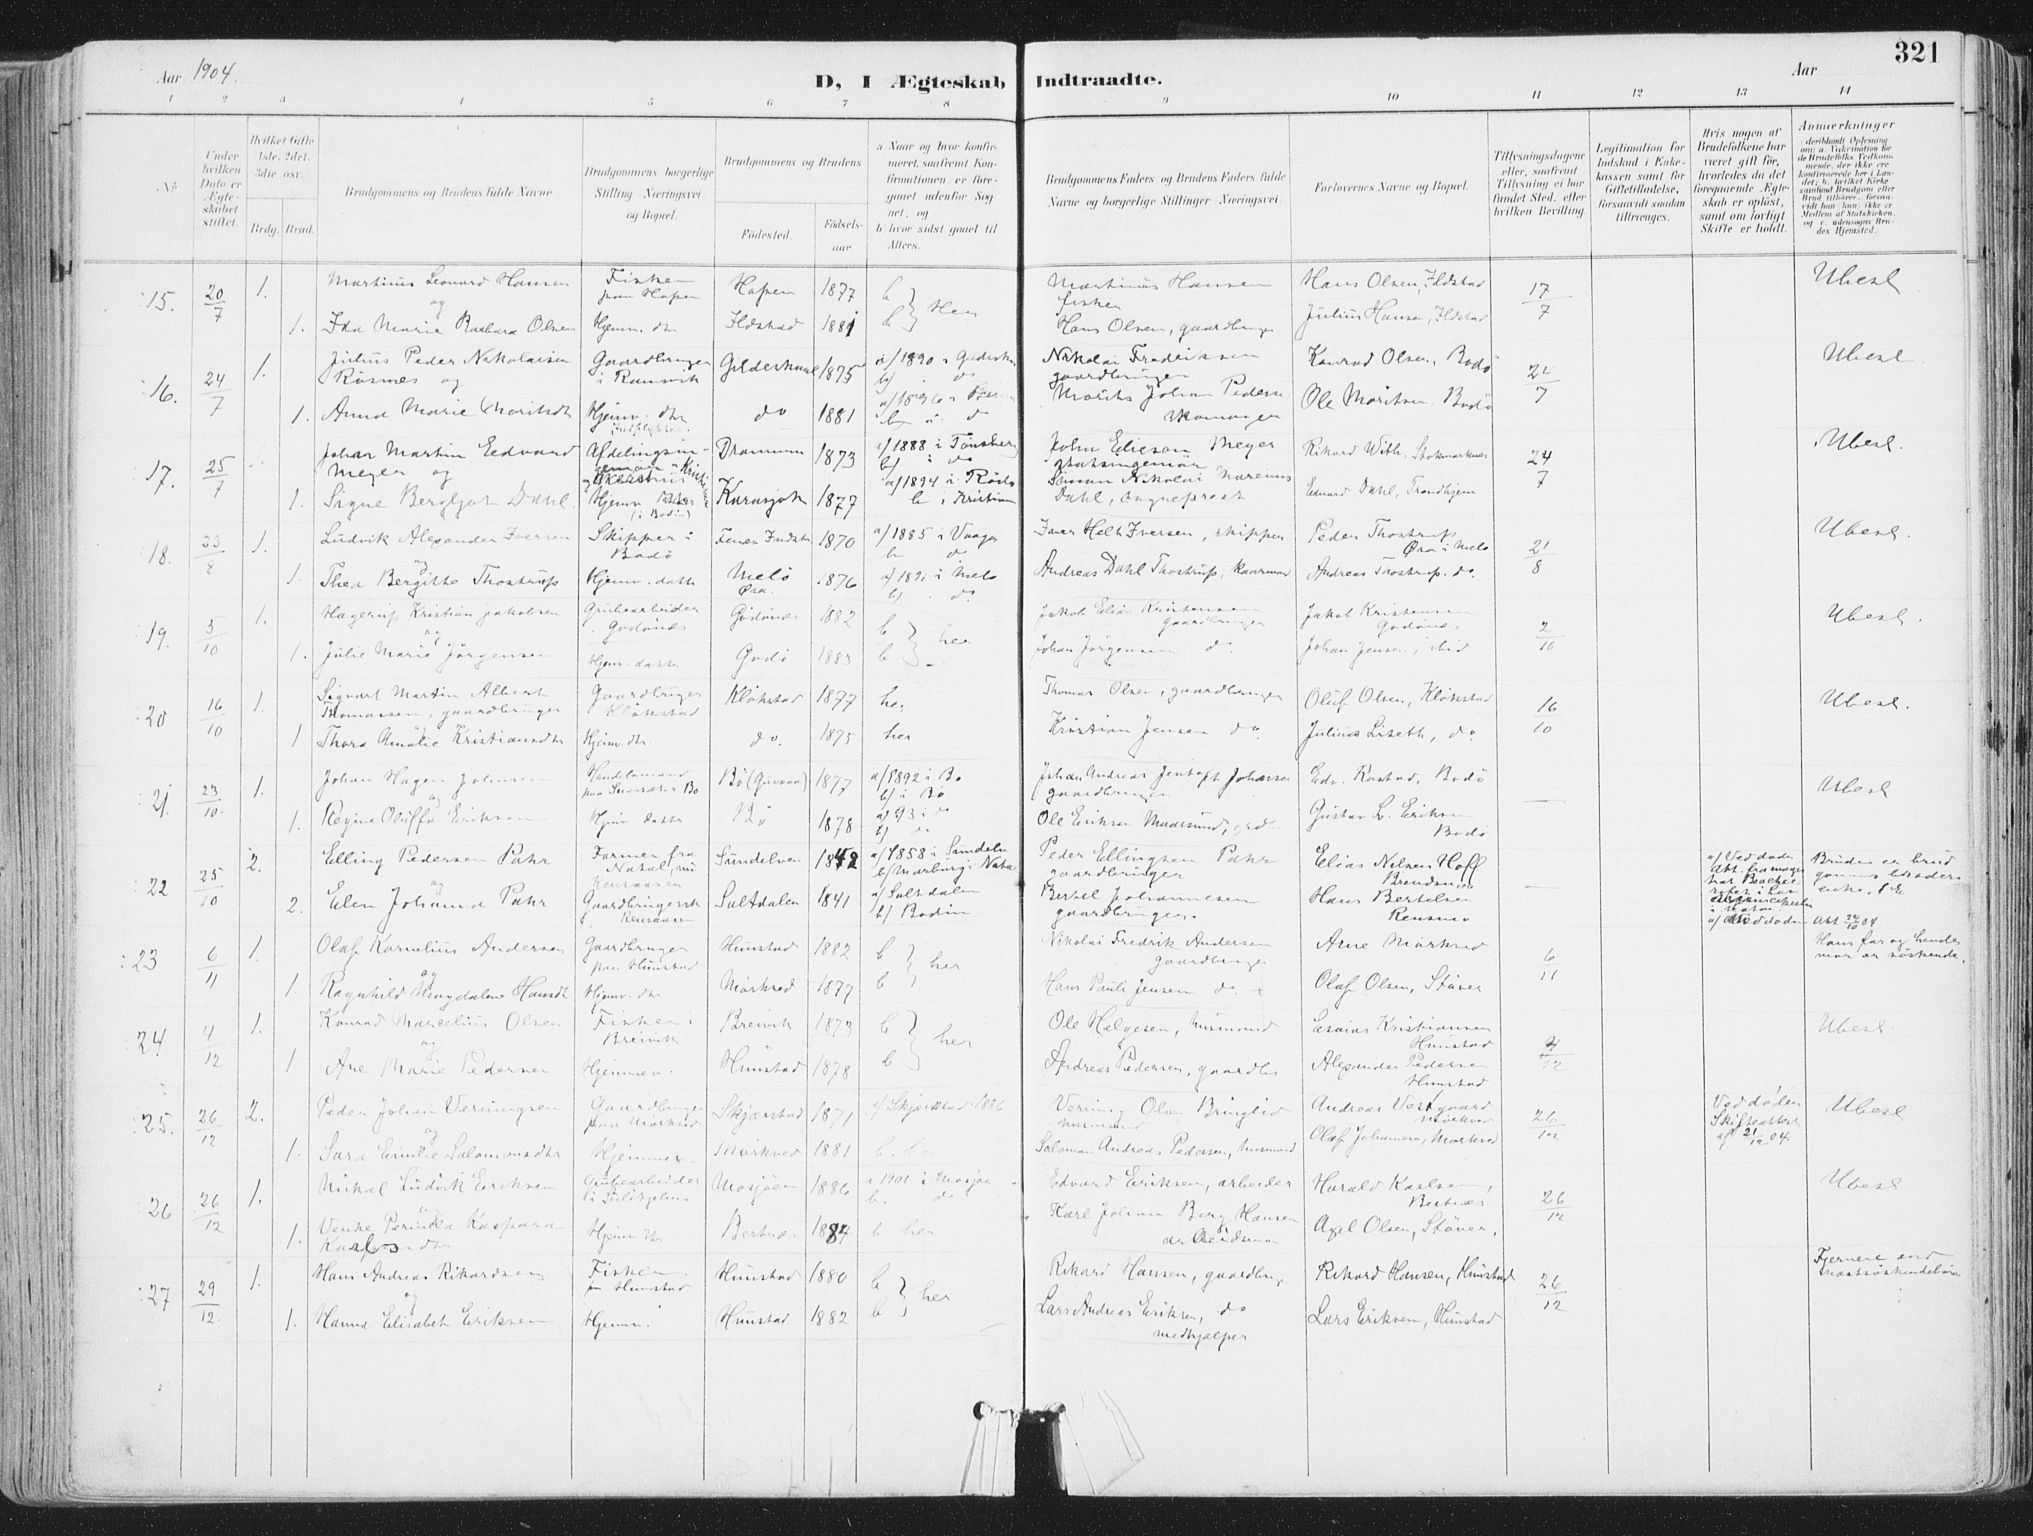 321
Aar 1904.
D, I Ægteskab Indtraadte.
Aar
1 2 3 4 5 6 7 8 9 10 11 12 13 14
No.
Under hvilken Dato er Ægteskabet stiftet.
Hvilket Gifte 1ste, 2det, 3die osv.
Brdg. Brud.
Brudgommens og Brudens fulde Navne
Brudgommens borgerlige Stilling Næringsvei og Bopæl.
Brudgommens og Brudens
Födested.
Födselsaar.
a) Naar og hvor konfirmeret, saafremt Konfirmationen er foregaaet udenför Sognet, og
b) hvor sidst gaaet til Alters.
Brudgommens Faders og Brudens Faders fulde Navne og borgerlige Stillinger Næringsvei
Forlovernes Navne og Bopæl.
Tillysningsdagene eller, saafremt Tillysning ei har fundet Sted, efter hvilken Bevilling.
Legitimation for Indskud i Enkekassen samt for Giftetilladelse, forsaavidt saadan tiltrænges.
Hvis nogen af Brudefolkene har været gift för, hvorledes da det foregaaende Ægteskab er oplöst, samt om lovligt Skifte er holdt.
Anmærkninger
15. 20/7 1. Martinus Leonard Hansen Fisker Hopen 1877 b Martinus Hansen Hans Olsen, Ildstad 17/7 Ubesl
og paa Hopen Her fisker
1. Ida Marie Barbara Olsen Hjemv. dtr Ildstad 1881 b Hans Olsen, gaardbruger Julius Hansen, Ildstad
16. 24/7 1. Julius Peder Nikolaisen Gaardbruger Gildeskaal 1875 a/ 1890 i Gildeskaal Nikolai Fredriksen Konrad Olsen, Bodö 24/7 Ubesl
Rösnes og i b/ i do gaardbruger
1. Anna Marie Moritsdtr Hjemv. dtr do 1881 a/ 1896 i Morits Johan Pedersen Ole Moritsen Bodö
17. 25/7 Johan Martin Edvard Afdelingsin- Drammen 1873 a/ 1888 i Tönsberg John Elieson Meyer Rikard With, Stokmarknes 24/7 Ubesl.
Meyer og b/ i do statsingeniör
1. Signe Bergljot Dahl Hjemv. Karasjok 1877 a/ 1894 i Rödö Simon Nikolai Mareinus
(i Bodin) b i Kristiania Dahl, sogneprest Edvard Dahl, Trondhjem
18. 23/8 1. Ludvik Alexander Iversen Skipper i 1870 a/ 1885 i Vaagan Iver Helt Iversen, skipper Peder Thostrup 21/8 Ubesl.
og Bodö b do Öra i Melö
1. Thea Bergitte Thostrup Hjemv. datter Melö 1876 a/ 1891 i Melö Andreas Dahl Thostrup, Andreas Thostrup. do.
Öra. b/ do.
19. 5/10 1. Hagerup Kristian Jakobsen Grubearbeider Godönes 1882 b Jakob Elias Kristensen Jakob Kristensen 2/10 Ubesl.
og Godönes her gaardbruger Godönes
1. Julie Marie Jörgensen Hjemv. datter Godö 1883 b Johan Jörgensen do. Johan Jensen, ibid
20 16/10 1. Sigvart Martin Albert Gaardbruger Klökstad 1877 her Thomas Olsen, gaardbruger Oluf Olsen, Klökstad 16/10 Ubesl.
Thomassen, gaardbruger Klökstad
1 Thora Amalie Kristiansdtr Hjemv. dtr. do. 1875 her Kristian Jensen do. Julius Liseth, do.
21. 23/10. 1. Johan Hagen Johnsen Handelsmand Bö 1877 a/ 1892 i Bö Johan Andreas Jentoft Johansen Edv. Rostad, Bodö — Ubesl
og b/ i Bö gaardbruger
1. Regine Oluffa Eriksen Hjemv datter Bö 1878 a/ 93 i do Ole Eriksen Gustav L. Eriksen
b/ do Bodö
22 25/10 2. Elling Pedersen Pahr Farmer fra Sundelven 1842 a/ 1858 i Sundelv Peder Ellingsen Pahr Elias Nilsen Hoff — a/ Ved döden Bruden er brud
og Natal, nu b/ Marburg i Natal gaardbruger gommens broders
2. Elen Johanna Pahr Gaardbrugersk Saltdalen 1841 a/ Saltdalen Bertel Johannesen Hans Bertelsen enke.
b/ Bodin gaardbruger. b/ ved döden Att 24/10 04
23 6/11 1. Olaf Kornelius Andersen Gaardbruger Hunstad 1882 b Nikolai Fredrik Andersen Arne Mörkved 6/11 Hans far og hendes
og paa Hunstad her gaardbruger mor er söskende.
1. Ragnhild Magdalene Hansdtr Hjemv. dtr Mörkved 1877 b Hans Pauli Jensen do. Olaf Olsen, Stöver
24. 4/12 1. Konrad Marcelius Olsen Fisker i Breivik 1873 b Ole Helgesen, husmand Esaias Kristiansen 4/12 Ubesl
og Breivik her Hunstad
1 Ane Marie Pedersen Hjemmev. Hunstad 1878 b Andreas Pedersen, gaardbr Alexander Pedersen
Hunstad
25. 26/12 2. Peder Johan Verningsen Gaardbruger Skjærstad 1871 a/ Skjærstad 1886 Verning Olsen Andreas Vestgaard 26/12 Ved döden Ubesl
og paa Mörkved husmand Mörkved Skifteattest
1. Sara Emilie Salomonsdtr Hjemmev Mörkved 1881 b. Salomon Andreas Pedersen, husmand Olaf Johansen, Mörkved af 21/12 04.
26 26/12 1. Mikal Ludvik Eriksen Grubearbeider Mosjöen 1886 a 1901 i Mosjöen Edvard Eriksen, arbeider Harald Karlsen, 26/12 Ubesl
b. do Bertnes
1. Kaspara Hjemv. dtr Bertnes 1884 b her Karl Johan Berg Hansen Axel Olsen, Stöver.
Karlsdtr arbeidsman
27 29/12. 1. Hans Andreas Rikardsen Fisker Hunstad 1880 b Rikard Hansen, gaardbruger Rikard Hansen, Hunstad 26/12 Fjernere end
og paa Hunstad her næstsöskendebörn
1. Hanna Elisabet Eriksen Hjemv. Hunstad 1882 b Lars Andreas Eriksen, do Lars Eriksen, Hunstad
medhjælper